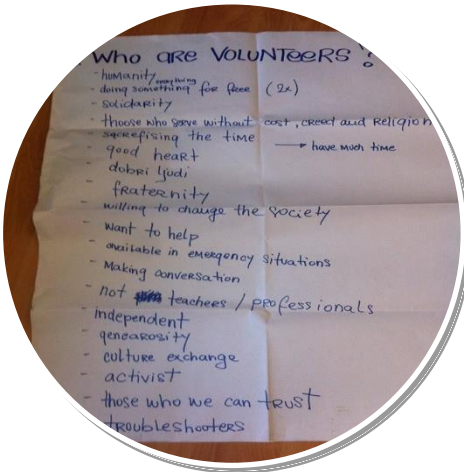 Who are VOLUNTEERS?
- humanity
everything
- doing something for free (2x)
- solidarity
- thoose who serve without cost, creed and Religion
- sacrefising the time → have much time
- good heart
- dobri ljudi
- fraternity
- willing to change the society
- want to help
- available in emergency situations
- Making conversation
- not teachers / professionals
- independent
- genearosity
- culture exchange
- activist
- those who we can trust
troubleshooters